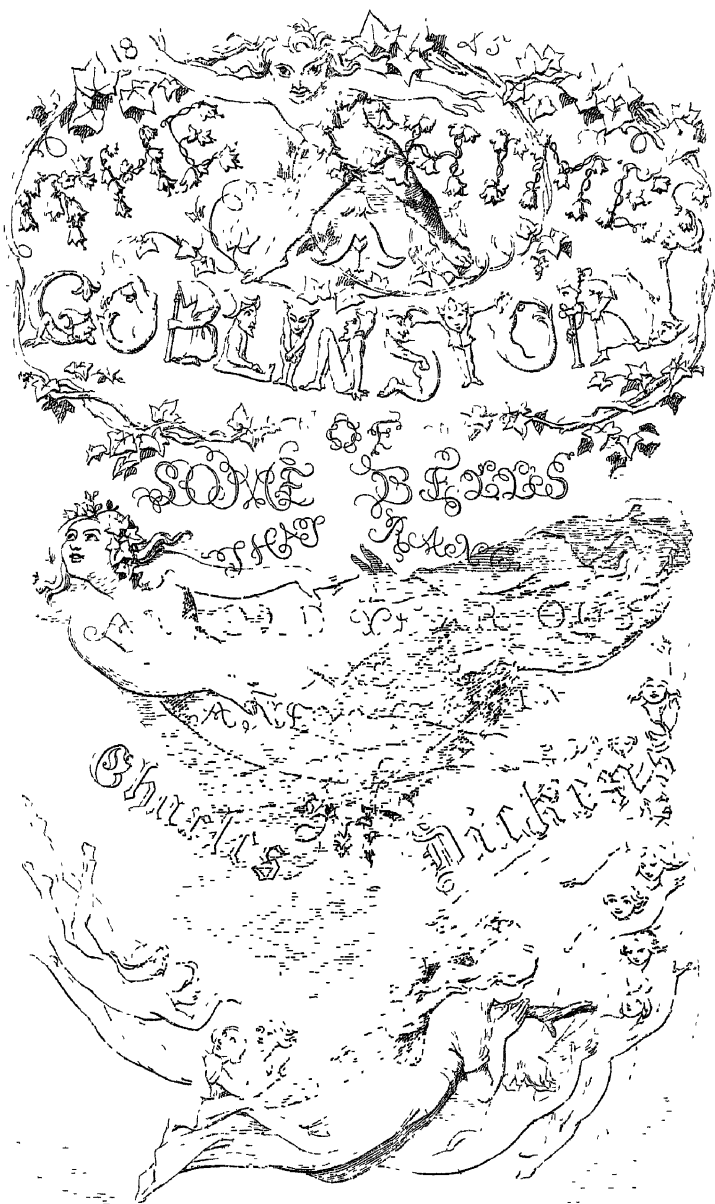 18 45
THE CHIMES
A
GOBLIN STORY
OF
SOME BELLS
THAT RANG
AN OLD YEAR OUT
A NEW IN
Charles Dickens